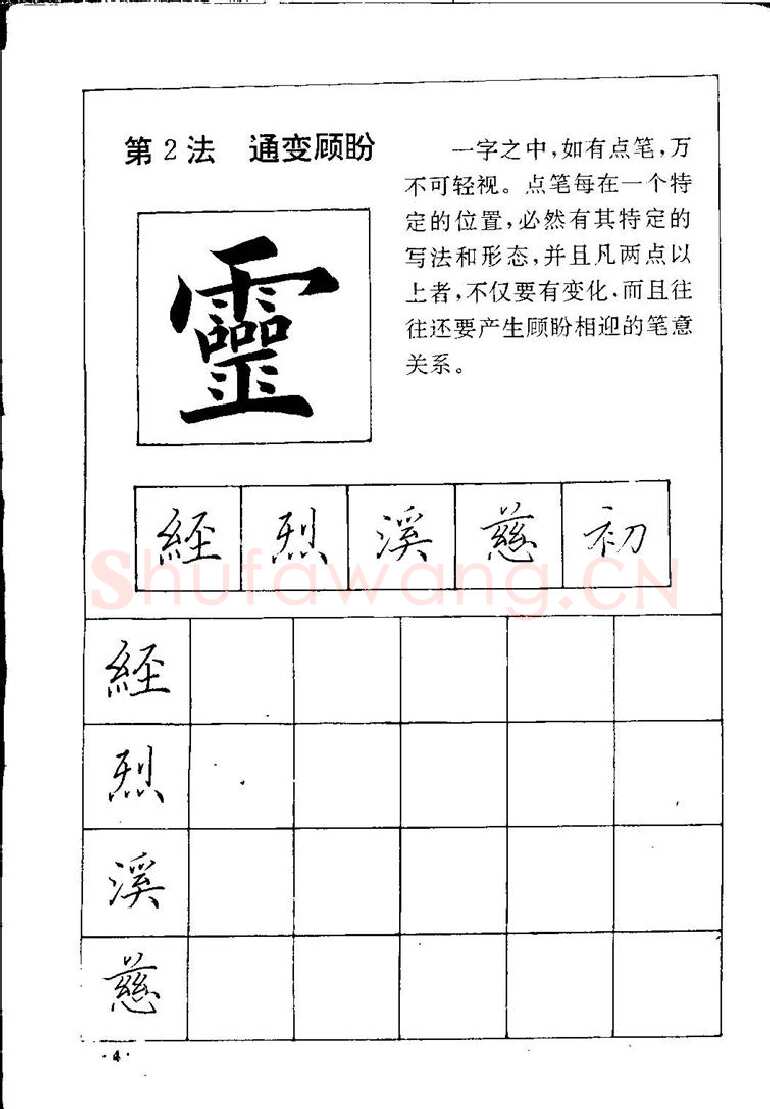 第2法 通变顾盼
一字之中，如有点笔，万
不可轻视。点笔每在一个特
定的位置，必然有其特定的
写法和形态，并且凡两点以
上者，不仅要有变化、而且往
往还要产生顾盼相迎的笔意
关系。
靈
經 烈 溪 慈 初
Shufawang.CN
經
烈
溪
慈
·4·